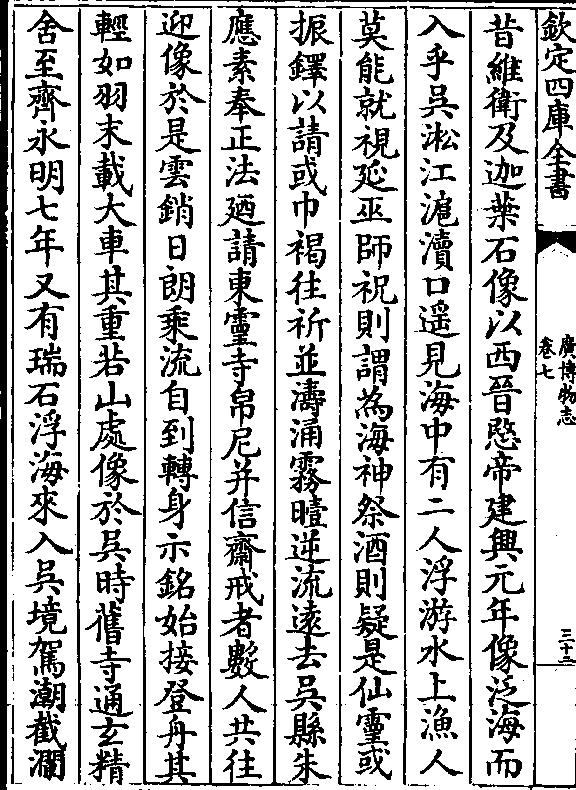 欽定四庫全書
廣博物志
卷七
三十二
昔維衛及迦葉石像以西晉愍帝建興元年像泛海而
入乎吳淞江滬瀆口遥見海中有二人浮游水上漁人
莫能就視延巫師祝則謂為海神祭酒則疑是仙靈或
振鐸以請或巾褐往祈並濤涌霧曀逆流遠去吳縣朱
應素奉正法廼請東靈寺帛尼并信齋戒者數人共往
迎像於是雲銷日朗乘流自到轉身示銘始接登舟其
輕如羽末載大車其重若山處像於吳時舊寺通玄精
舍至齊永明七年又有瑞石浮海來入吳境駕潮截瀾